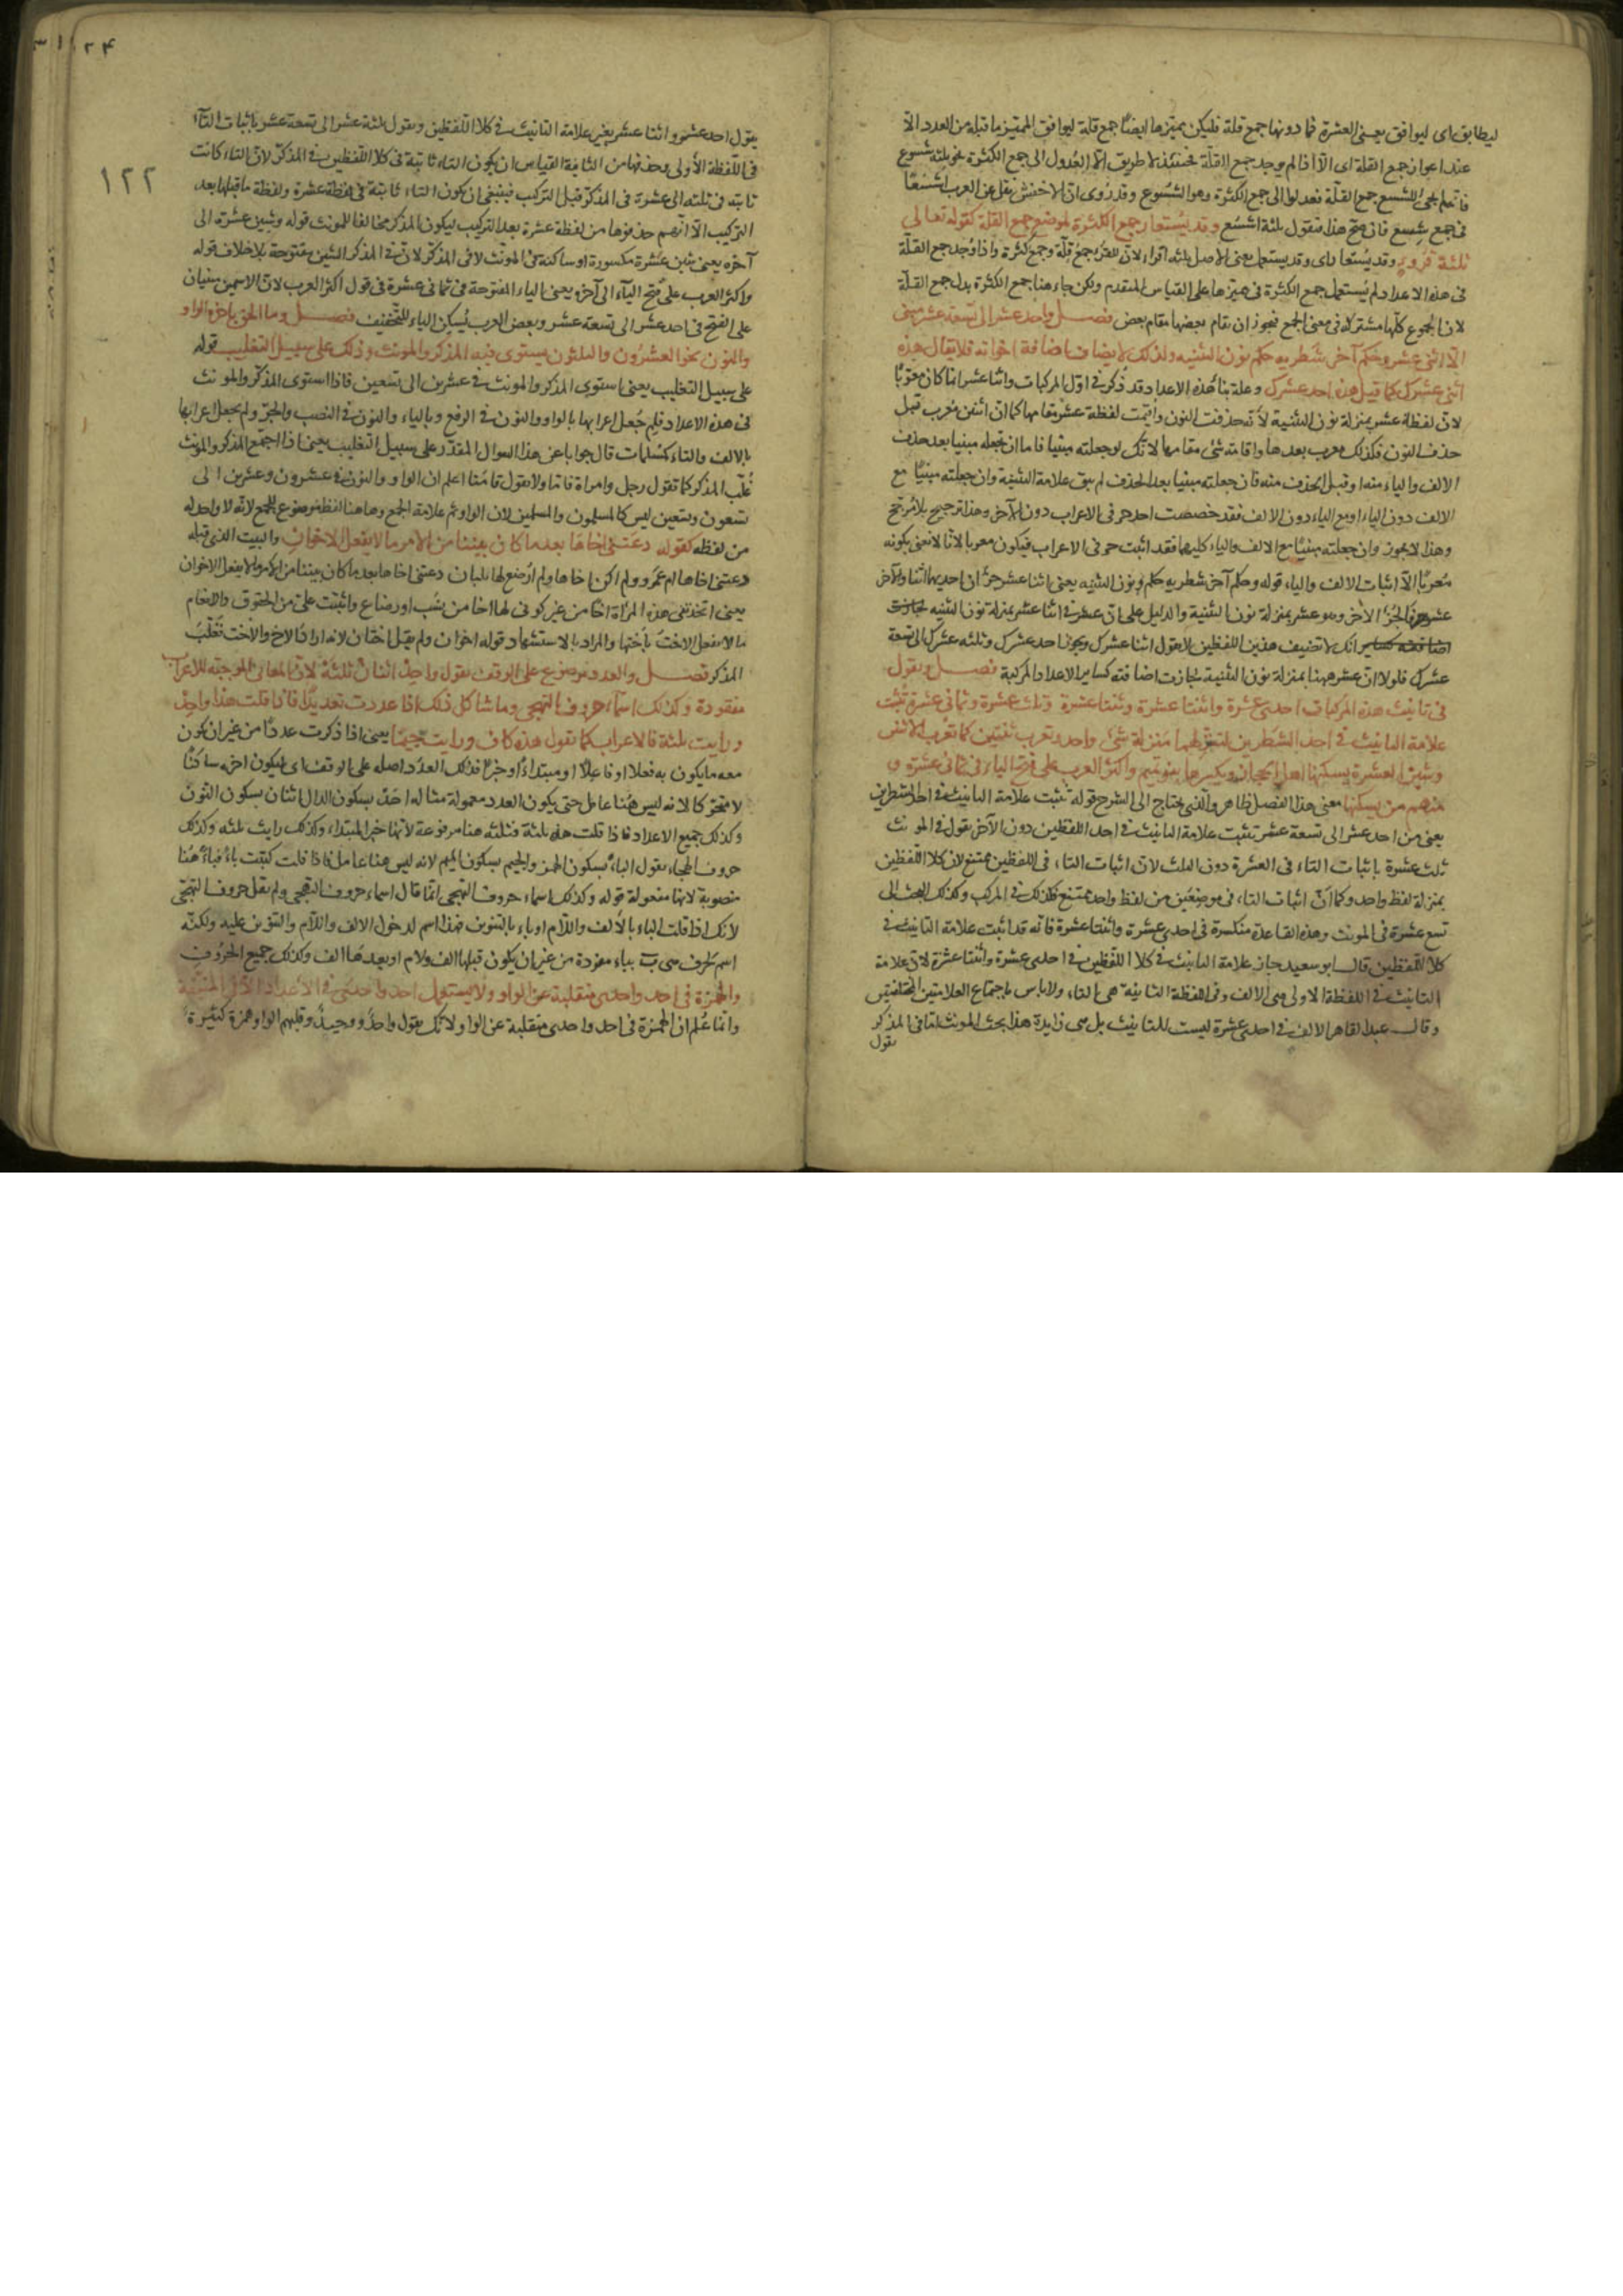 ليطابق اى ليوافق يعنى العشرة فما دونها جمع قلة فليكن مميزها ايضًا جمع قلة ليوافق المميز ما قبله من العدد الّا
عند اعواز جمع القلة اى الّا اذا لم يوجد جمع القلّة فحينئذ لا طريق الّا العُدول الى جمع الكثرة نحو ثلثة شسوع
فانه لم يجئ للشسع جمع القلّة فعدلوا الى جمع الكثرة وهو الشسوع وقد رُوى ان الاخفش نقل عن العرب اشسُعًا
فى جمع شسع فان صح هذا فتقول ثلثة اشسُع وقد يُستعار جمع الكثرة لموضع جمع القلة كقوله تعالى
ثلثة قروءٍ وقد يُستعار اى وقد يستعمل يعنى الاصل ثلثة اقراء لان للقرء جمعُ قلّة وجمعُ كثرة واذا وُجد جمع القلّة
فى هذه الاعداد لم يُستعمل جمع الكثرة فى مميزها على القياس المتقدم ولكن جاء هنا جمع الكثرة بدل جمع القلّة
لان الجموع كلّها مشتركة فى معنى الجمع فيجوز ان يقام بعضها مقام بعض فصل واحد عشر الى تسعة عشر مبنى
الّا اثنى عشر وحكم آخر شطريه حكم نون التثنيه ولذلك لا يضاف اضافة اخواته فلا يقال هذه
اثنى عشرك كما قيل هذه احد عشرك وعلة بناء هذه الاعداد قد ذُكر فى اوّل المركبات واثنا عشر انما كان معربًا
لان لفظة عشر بمنزلة نون التثنية لانه حذفت النون واقيمت لفظة عشر مقامها كما ان اثنين مُعرب قبل
حذف النون فكذلك معرب بعدها واقامته شئ مقامها لانك لو جعلته مبنيا فاما ان تجعله مبنيا بعد حذف
الالف والياء منه او قبل الحذف منه فان جعلته مبنيا بعد الحذف لم يبق علامة التثنية وان جعلته مبنيًا مع
الالف دون الياء او مع الياء دون الالف فقد خصصت احد حرفى الاعراب دون الآخر وهذا ترجيح بلا مُرجّح
وهذا لا يجوز وان جعلته مبنيًا مع الالف والياء كليهما فقد اثبت حرفى الاعراب فيكون معربا لانا لا نعنى بكونه
مُعربًا الّا اثبات الالف والياء قوله وحكم آخر شطريه حكم نون التثنيه يعنى اثنا عشر جزآن احديها اثنا والآخر
عشر الجزءُ الآخر وهو عشر بمنزلة نون التثنية والدليل على ان عشر فى اثنا عشر بمنزلة نون التثنيه
انك لا تضيف هذين اللفظين لا تقول اثنا عشرك ويجوز احد عشرك وثلثة عشرك الى تسعة
عشرك فلولا ان عشر ههنا بمنزلة نون التثنية لجازت اضافته كساير الاعداد المركبة فصل وتقول
فى تانيث هذه المركبات احدى عشرة واثنتا عشرة وثنتا عشرة وثلث عشرة وثمانى عشرة تُثبت
علامة التانيث فى احد الشطرين لتنزلهما منزلة شئ واحد وتعرب ثنتين كما تُعرب الاثنين
وشين العشرة يسكنها اهل الحجاز ويكسرها بنو تميم واكثر العرب على فتح الياء فى ثمانى عشرة و
منهم من يسكنها معنى هذا الفصل ظاهر والذى يحتاج الى الشرح قوله تُثبت علامة التانيث فى احد الشطرين
يعنى من احد عشر الى تسعة عشر تثبت علامة التانيث فى احد اللفظين دون الآخر تقول فى المونث
ثلث عشرة باثبات التاء فى العشرة دون الثلث لان اثبات التاء فى اللفظين ممتنع لان كلا اللفظين
بمنزلة لفظ واحد وكما انّ اثبات التاء فى موضعين من لفظ واحد ممتنع فكذلك فى المركب وكذلك البحث الى
تسع عشرة فى المونث وهذه القاعدة منكسرة فى احدى عشرة واثنتا عشرة فانه قد اثبت علامة التانيث فى
كلا اللفظين قال ابو سعيد جاز علامة التانيث فى كلا اللفظين فى احدى عشرة واثنتا عشرة لان علامة
التانيث فى اللفظة الاولى هى الالف وفى اللفظة الثانية هى التاء ولا باس باجتماع العلامتين المختلفتين
وقال عبد القاهر الالف فى احدى عشرة ليست للتانيث بل هى زايدة هذا بحث المونث اما فى المذكر
تقول
١٢٢
يقول احد عشر واثنا عشر بغير علامة التانيث فى كلا اللفظين وتقول ثلثة عشر الى تسعة عشر باثبات التآء
فى اللفظة الأولى وحذفها من الثانية القياس ان يكون التاء ثابتة فى كلا اللفظين فى المذكر لان التاء كانت
ثابتة فى ثلثة الى عشرة فى المذكر قبل التركيب فينبغى ان يكون التاء ثابتة فى لفظة عشرة ولفظة ما قبلها بعد
التركيب الّا انّهم حذفوها من لفظة عشرة بعد التركيب ليكون المذكر مخالفا للمونث قوله وشين عشرة الى
آخره يعنى شين عشرة مكسورة او ساكنة فى المونث لا فى المذكر لان فى المذكر الشين مفتوحة بلا خلاف قوله
واكثر العرب على فتح اليآء الى آخره يعنى الياء المفتوحة فى ثمانى عشرة فى قول اكثر العرب لان الاسمين مبنيان
على الفتح فى احد عشر الى تسعة عشر وبعض العرب يُسكن الياء للتخفيف فصل وما الحق باخره الواو
والنون نحو العشرون والثلثون يستوى فيه المذكر والمونث وذلك على سبيل التغليب قوله
على سبيل التغليب يعنى استوى المذكر والمونث فى عشرين الى تسعين فاذا استوى المذكر والمونث
فى هذه الاعداد فلم جُعل اعرابها بالواو والنون فى الرفع وبالياء والنون فى النصب والجر ولم يجعل اعرابها
بالالف والتاء كمسلمات قال جوابا عن هذا السوال المقدر على سبيل التغليب يعنى اذا اجتمع المذكر والمونث
غُلّب المذكر كما تقول رجل وامراة قاما ولا تقول قامتا اعلم ان الواو والنون فى عشرون وعشرين الى
تسعون وتسعين ليس كالمسلمون والمسلمين لان الواو ثم علامة الجمع وهاهنا لفظ موضوع للجمع لانّه لا واحد له
من لفظه كقوله دعتنى اخاها بعد ما كان بيننا من الامر ما لا يفعل الاخوانِ والبيت الذى قبله
دعتنى اخاها ام عمرو ولم اكن اخاها ولم اُرضع لها بلبان دعتنى اخاها بعد ما كان بيننا من الامر ما لا يفعل الاخوان
يعنى اتخذتنى هذه المراة اخًا من غير كونى لها اخا من نسَب او رضاع واثبتت علىّ من الحقوق والانعام
ما لا يفعل الاخت باختها والمراد بالاستشهاد قوله اخوان ولم يقل اختان لانه اراد الاخ والاخت فغلّبَ
المذكر فصل والعدد موضوع على الوقف تقول واحد اثنان ثلثة لان المعانى الموجبة للاعراب
مفقودة وكذلك اسماء حروف التهجى وما شاكل ذلك اذا عددت تعديدًا فاذا قلت هذا واحدٌ
ورايت ثلثة فالاعراب كما تقول هذه كاف ورايت جيمًا يعنى اذا ذكرت عددًا من غير ان يكون
معه ما يكون به فعلا او فاعلاً او مبتداءً او خبرًا فذلك العدد اصله على الوقف اى ليكون اخره ساكنًا
لا متحركا لانه ليس هُنا عامل حتى يكون العدد معمولة مثاله احدْ بسكون الدال اثنان بسكون النون
وكذلك جميع الاعداد فاذا قلت هذه ثلثة فثلثة هنا مرفوعة لانها خبر المبتداء وكذلك رايت ثلثه وكذلك
حروف الهجاء تقول الباء بسكون الهمز والجيم بسكون الميم لانه ليس هنا عامل فاذا قلت كتبت باءً فباءً هُنا
منصوبة لانها مفعولة قوله وكذلك اسماء حروف التهجى انما قال اسماء حروف التهجى ولم يقل حروف التهجّى
لانك اذا قلت الباء بالألف واللّام او باء بالتنوين فهذا اسم لدخول الالف واللّام والتنوين عليه ولكنّه
اسم لحرف هى بَ بباء مفردة من غير ان يكون قبلها الف ولام او بعدهَا الف وكذلك جميع الحُرُوفِ
والهمزة فى احد واحدى منقلبة عن الواو ولا يستعمل احد واحدى فى الأعداد الا فى المنيّفة
وانما عُلم ان الهمزة فى احد واحدى منقلبة عن الواو لانّك تقول واحدٌ ووحيدٌ وقلبهم الواو همزة كثيرة